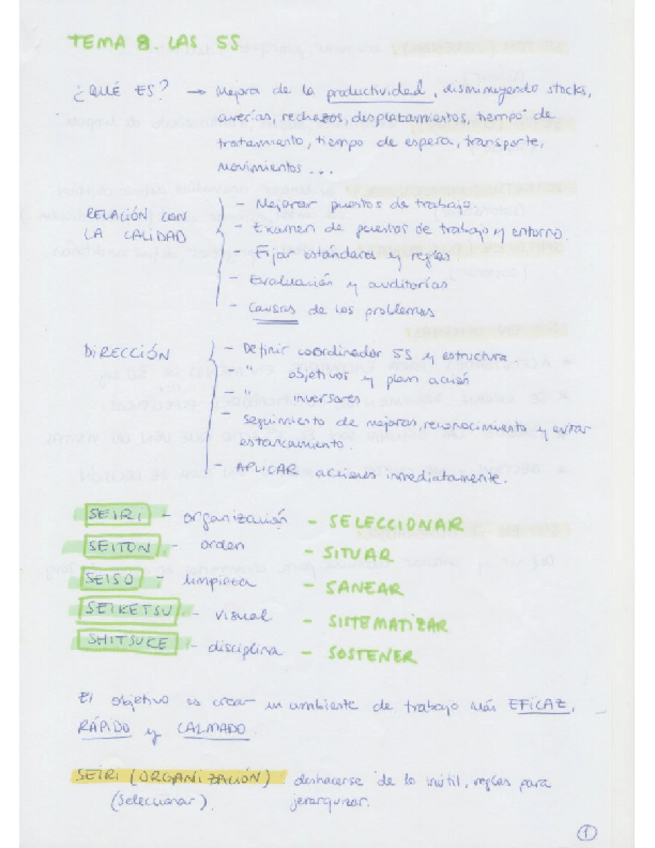 TEMA 8. LAS 5S
¿QUÉ ES? → Mejora de la productividad, disminuyendo stocks,
averías, rechazos, desplazamientos, tiempo de
tratamiento, tiempo de espera, transporte,
movimientos ...
RELACIÓN CON LA CALIDAD
- Mejorar puestos de trabajo
- Examen de puestos de trabajo y entorno.
- Fijar estándares y reglas
- Evaluación y auditorías
- Causas de los problemas
DIRECCIÓN
- Definir coordinador 5S y estructura
- " objetivos y plan acción
- " inversores
- Seguimiento de mejoras, reconocimiento y evitar
estancamiento.
- APLICAR acciones inmediatamente.
SEIRI - organización - SELECCIONAR
SEITON - orden - SITUAR
SEISO - limpieza - SANEAR
SEIKETSU - visual - SISTEMATIZAR
SHITSUKE - disciplina - SOSTENER
El objetivo es crear un ambiente de trabajo más EFICAZ,
RÁPIDO y CALMADO
SEIRI (ORGANIZACIÓN) deshacerse de lo inútil, reglas para
(Seleccionar). jerarquizar.
1